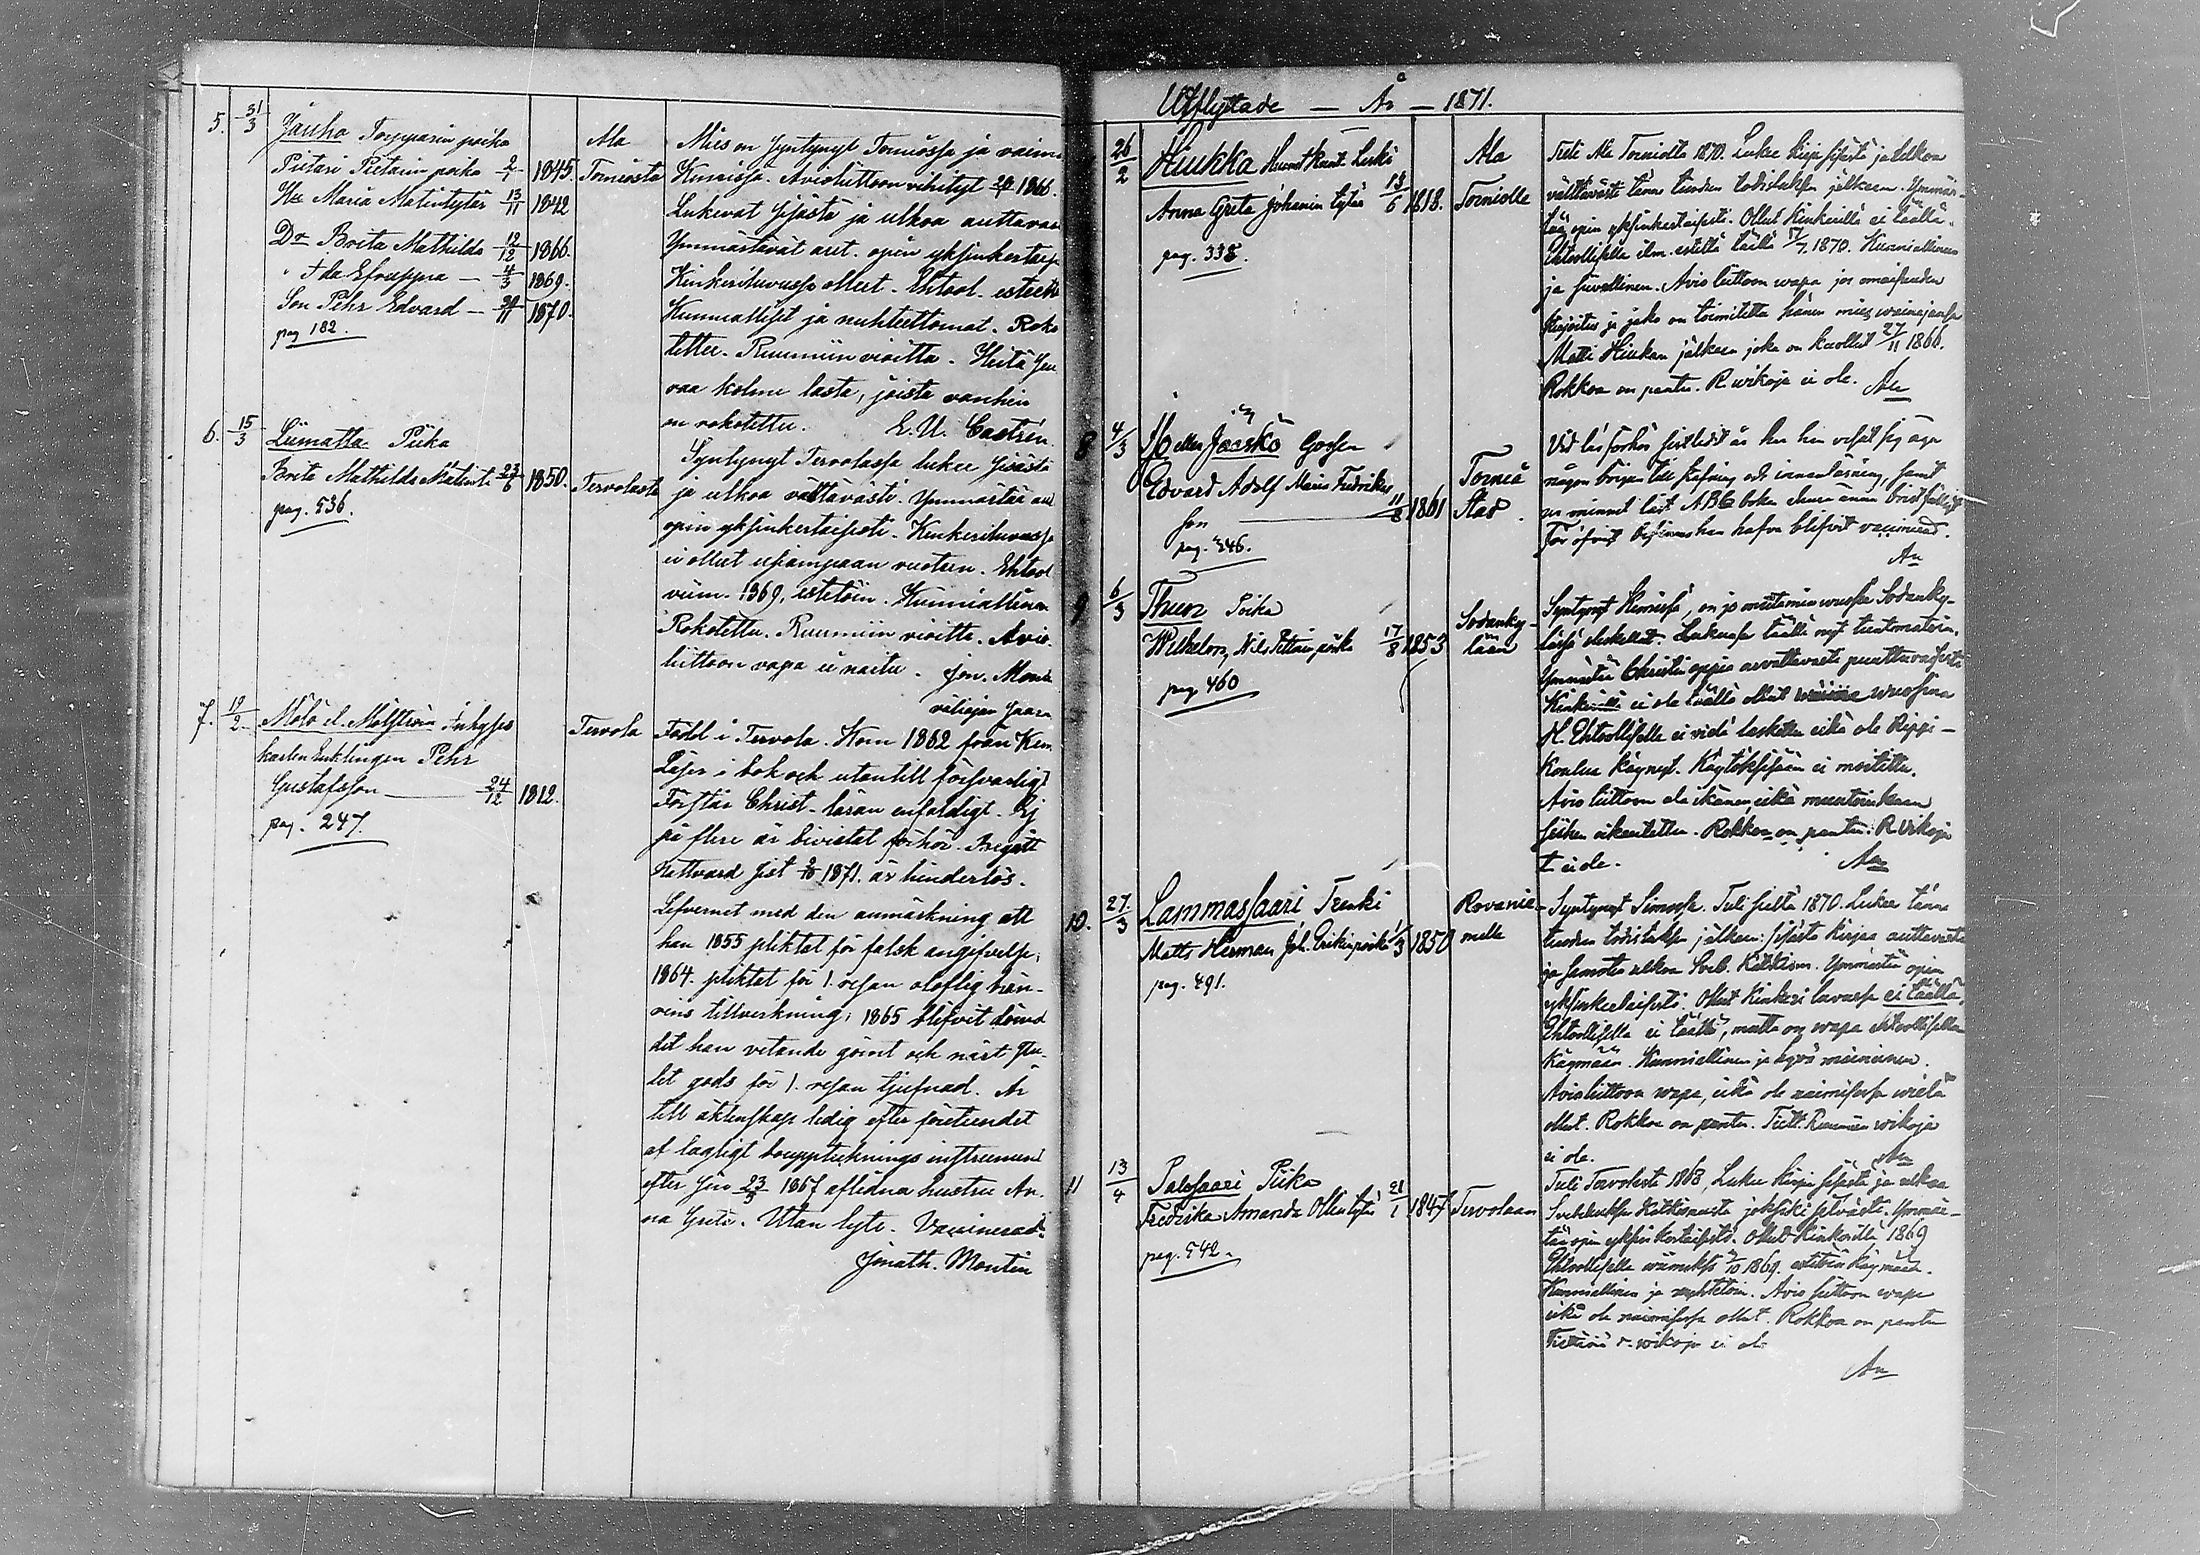 5. 31/3 Jauho Torpparin poika
Pietari Pietarin poika 2/1 1845.
Hu Maria Matintytär 13/11 1842
Dr Brita Mathilda 12/12 1866.
4/3 1869.
Son Pehr Edvard 1870.
pag 182.
Ala
Torniosta
Mies on syntynyt Torniossa ja vaimo
Kemissä. Avioliittoon vihityt 1866.
Lukevat sisästä ja ulkoa auttavas
Ymmärtävät aut. opin yksinkertais
Kinkeriluvussa olleet. Ehtool. esteett
Kunnialliset ja nuhteettomat. Roko
tettu. Ruumiin vioitta. Heitä seu
raa kolme lasta, joista vanhin
on rokotettu. E. U. Castrén.
6. 15/3 Liimatta Piika
Brita Mathilda Matint. 23/6 1850.
pag. 536.
Tervolasta
Syntynyt Tervolassa lukee sisästä
ja ulkoa välttävästi. Ymmärtää aut
opin yksinkertaisesti. Kinkeriluvussa
ei ollut useampaan vuoteen. Ehtool
viim. 1869, estetöin. Kunniallinen
Rokotettu. Ruumiin vioitta. Avio-
liittoon vapa ei naitu. Jon. Montin
väliajan Saarn
7. 19/2 Molo el. Molström Inhyses
karlen Enklingen Pehr
Gustafsson 24/12 1812.
pag. 247.
Tervola
Född i Tervola. Kom 1862 från Kem.
Läser i bok och utantill försvarligt
Förstår Christ. läran enfaldigt. Ej
på flere år bivistat förhör. Begått
Nattvard sist 1871. är hinderlös.
Lefvernet med den anmärkning att
han 1855 pliktat för falsk angifvelse,
1864 pliktat för 1. resan olaflig brän-
vins tillverkning, 1865 blifvit dömd
det han vetande gömt och närt stu-
lit gods för 1. resan tjufnad. Är
till äktenskap ledig efter företeendet
af lagligt bouppteknings instrument
efter sin 23/5 1867 aflidna hustru An-
na Greta. Utan lyte. Vaccinerad.
Jonath. Montin
Utflyttade — År — 1871.
26/2 Hiukka Huonekunt Leski
Anna Greta Johanin tytär 13/6 1818.
pag. 338.
Ala
Torniolle
Tuli Ala Torniosta 1870. Lukee kirja sisästä ja ulkoa
välttävästi tänne tuodun todistuksen jälkeen. Ymmär-
tää opin yksinkertaisesti. Ollut Kinkerillä ei täällä.
Ehtoollisella ilm. estettä täällä 1870. Kunniallinen
ja siivollinen. Avio liittoon wapa jos omaisuuden
kirjoitus ja jako on toimitettu hänen mies wainajansa
Matti Hiukan jälkeen joka on kuollut 27/11 1866.
Rokkoa on pantu. R wikoja ei ole. An
8 4/3 Jaaskö Gossen
Edvard Adolf Maria Fredrikas
son 11/8 1861
pag. 346.
Torneå
Stad.
Vid läsförhör sistledit år har han visat sig äga
någon början till stafning och innanläsning, samt
ur minnet läst ABC boken ännu bristfälligt.
För öfrigt befinnes han hafva blifvit vaccinerad.
An
9 6/3 Thun Poika
Wilhelm, Nils Pettarin poika 17/8 1853
pag 460
Sodanky-
lään
Syntynyt Kemissä, on jo muutamia wuosia Sodanky-
lässä oleskellut. Lukunsa täällä nyt tuntematoin.
Ymmärtää Christin oppia arvattavasti puuttuvaisesti
Kinkerillä ei ole täällä ollut wuosina
H. Ehtoollisella ei vielä laskettu eikä ole Rippi-
koulua käynyt. Käytöksessään ei moitittu.
Avio liittoon ala ikänen, eikä muutoinkaan
siihen oikeutettu. Rokkoa on pantu. R Wikoja
t ei ole. An
10. 27/3 Lammassaari, Trenki
Matts Herman Joh. Erikin poika 1/3 1850
pag. 491.
Rovanie-
melle
Syntynyt Simossa. Tuli sieltä 1870. Lukee tänne
tuodun todistuksen jälkeen: sisästä kirjaa auttavasti
ja samoten ulkoa Sveb. Katkism. Ymmärtää opin
yksinkertaisesti. Ollut Kinkeri luvussa ei täällä.
Ehtoollisella ei täällä, mutta on wapa ehtoollisella
käymään. Kunniallinen ja hyvä maininen.
Avio liittoon wapa, eikä ole naimisissa wielä
ollut. Rokkoa on pantu. Tiett. Ruumiin wikoja
ei ole. An
11 13/4 Palosaari Piika
Fredrika Amanda Ollin tytär 21/1 1847
pag. 542.
Tervolaan
Tuli Tervolasta 1868, Lukee kirja sisästä ja ulkoa
Svebeliuksen Katkismusta joksiki selvästi. Ymmär-
tää opin yksin kertaisesti. Ollut Kinkerillä 1869
Ehtoollisella wiimeksi 1869. estetöin käymään.
Kunniallinen ja nuhtetoin. Avio liittoon wapa
eikä ole naimisissa ollut. Rokkoa on pantu
Tiettäviä r. wikoja ei ole
An